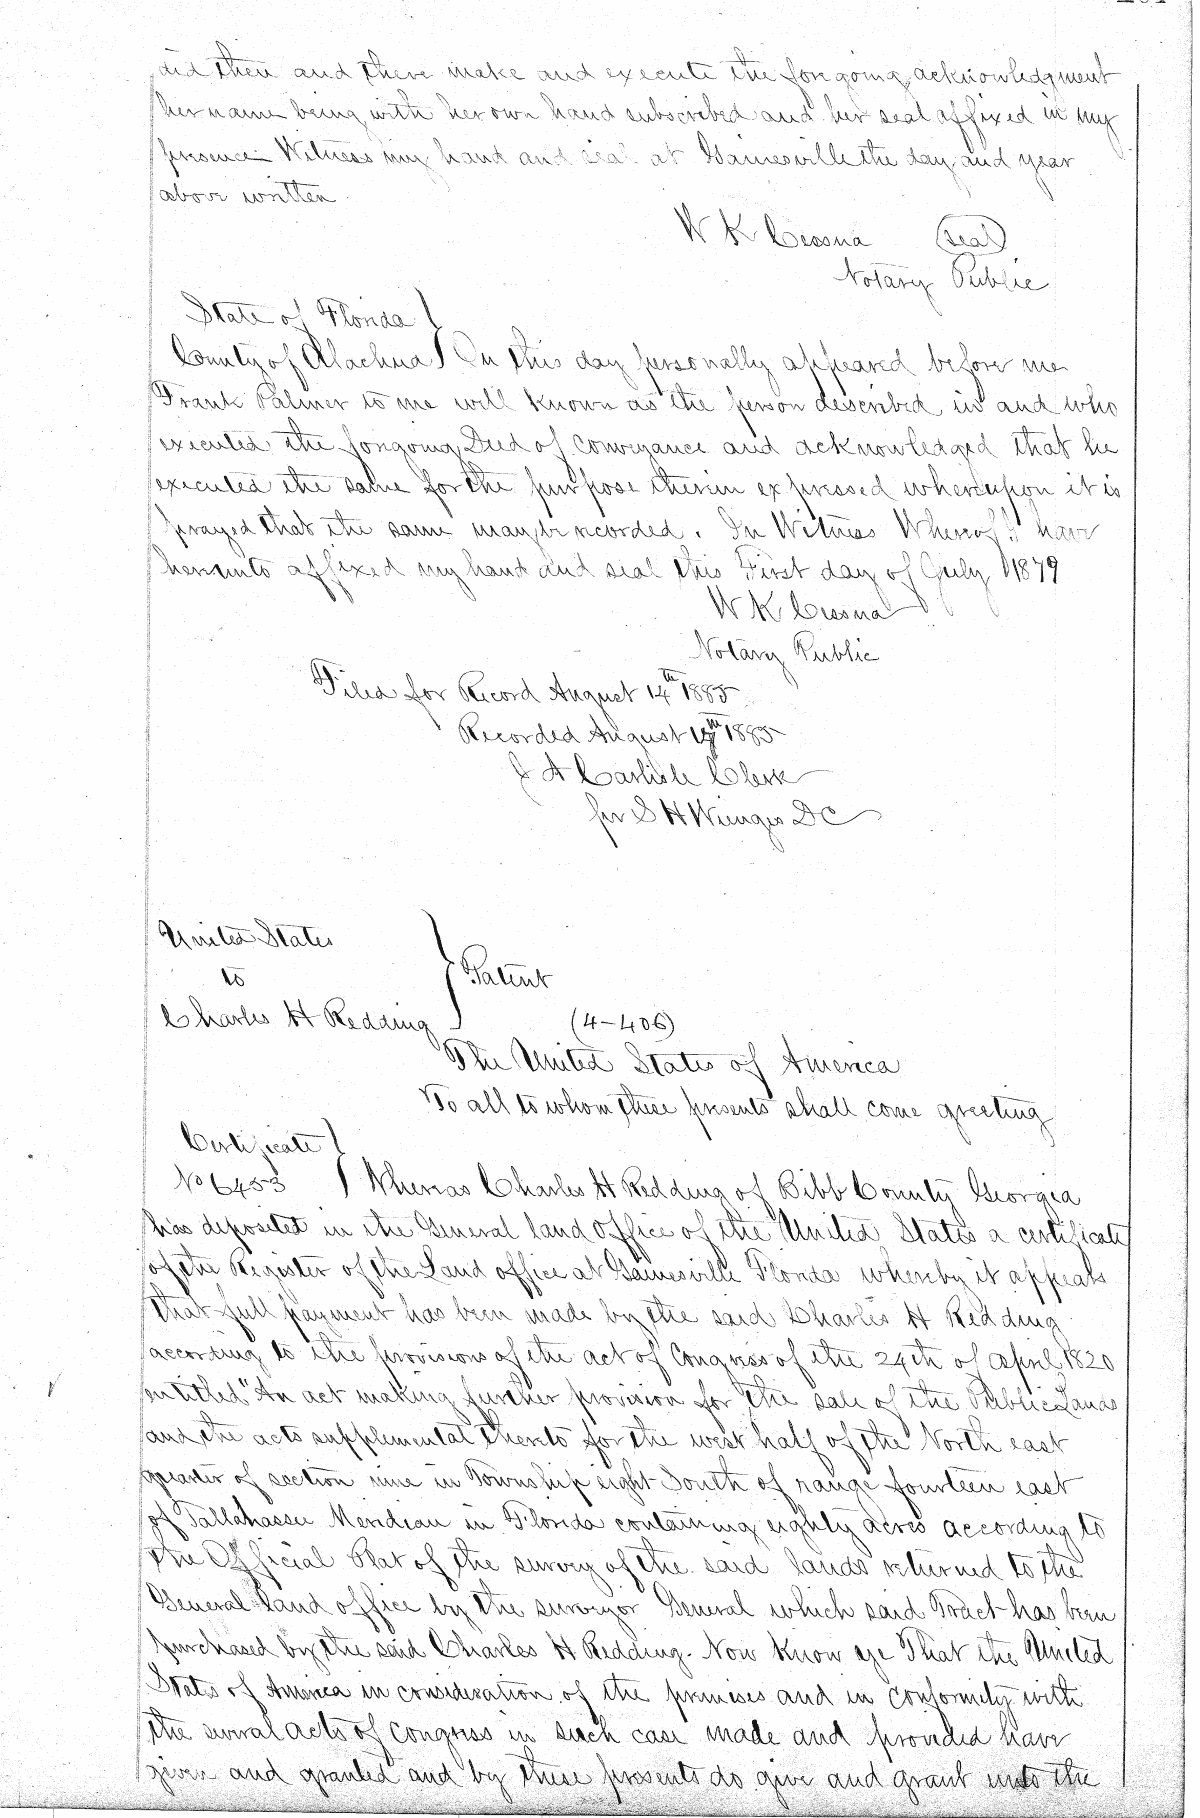 did then and there make and execute the foregoing acknowledgment
her name being with her own hand subscribed and her seal affixed in my
presence Witness my hand and seal at Gainesville the day and year
above written
W K Cessna (seal)
Notary Public
State of Florida }
County of Alachua } On this day personally appeared before me
Frank Palmer to me well known as the person described in and who
executed the forgoing Deed of Conveyance and acknowledged that he
executed the same for the purpose therein expressed whereupon it is
prayed that the same may be recorded. In Witness Whereof I have
hereunto affixed my hand and seal this First day of July 1879
W K Cessna
Notary Public
Filed for Record August 14th 1885
Recorded August th 1885
J A Carlisle Clerk
per S H Wienges DC
United States
to } Patent
Charles H Redding
(4-406)
The United States of America
To all to whom these presents shall come greeting
Certificate }
No 6453 } Whereas Charles H Redding of Bibb County Georgia
has deposited in the General land Office of the United States a certificate
of the Register of the Land office at Gainesville Florida whereby it appears
that full payment has been made by the said Charles H Redding
according to the provisions of the act of Congress of the 24th of april 1820
entitled "An act making further provision for the sale of the Public Lands
and the acts supplemental thereto for the west half of the North east
quarter of section nine in Township eight South of range fourteen east
of Tallahassee Meridian in Florida containing eighty acres according to
the Official Plat of the survey of the said lands returned to the
General land office by the surveyor General which said Tract has been
purchased by the said Charles H Redding. Now know ye That the United
States of America in consideration of the premises and in conformity with
the several acts of Congress in such case made and provided have
given and granted and by these presents do give and grant unto the